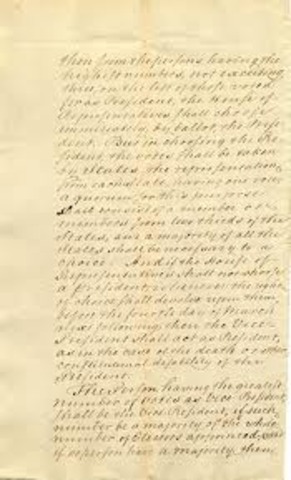 then from the persons having the
highest numbers, not exceeding
three, on the list of those voted
for as President, the House of
Representatives shall choose
immediately, by ballot, the Pres
ident. But in choosing the Pre
sident, the votes shall be taken
by States, the representation
from each State having one vote;
a quorum for this purpose
shall consist of a member or
members from two thirds of the
States, and a majority of all the
States shall be necessary to a
choice. And if the House of
Representatives shall not choose
a President, whenever the right
of choice shall devolve upon them,
before the fourth day of March
next following, then the Vice-
President shall act as President,
as in the case of the death or other
constitutional disability of the
President.
The Person having the greatest
number of votes as Vice President,
shall be the Vice President, if such
number be a majority of the whole
number of Electors appointed, and
if no person have a majority, then